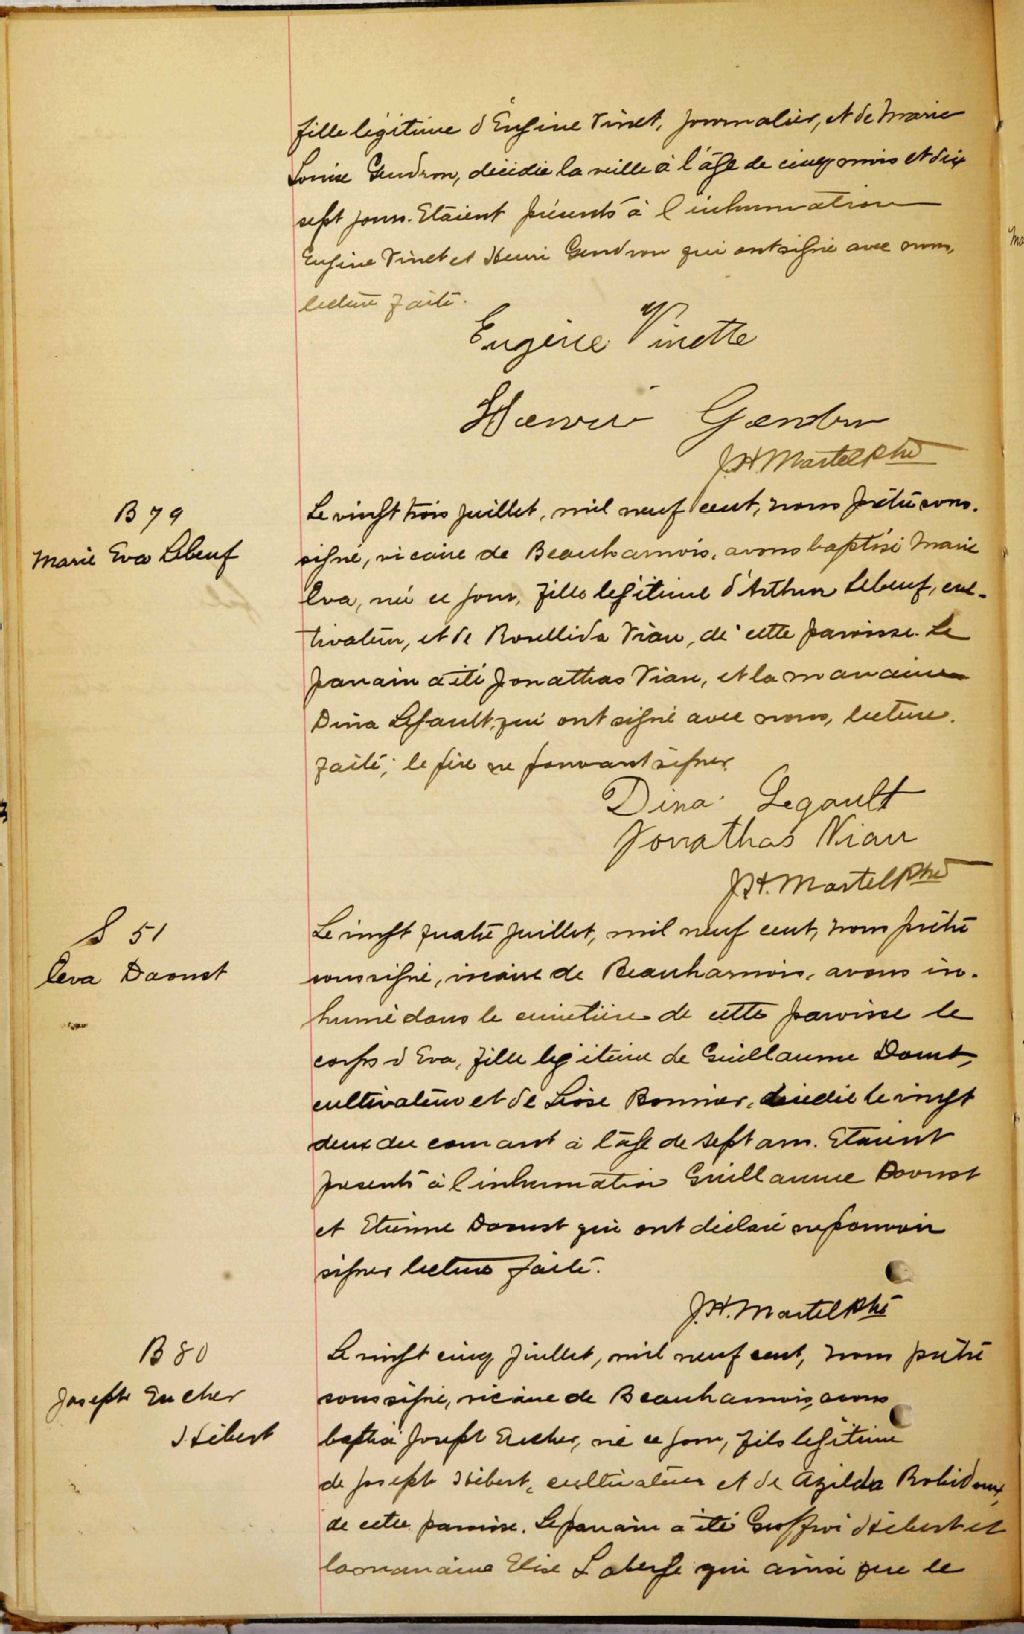 fille légitime d'Eugène Vinet, journalier, et de Marie
Louise Gendron, décédée la veille à l'âge de cinq mois et dix
sept jours. Etaient présents à l'inhumation
Eugène Vinet et Henri Gendron qui ont signé avec nous,
lecture faite.
Eugène Vinette
Henri Gendron
J.H. Martel Ptre
B 79
Marie Eva Lebeuf
Le vingt trois juillet, mil neuf cent, nous prêtre sous-
signé, vicaire de Beauharnois, avons baptisé Marie
Eva, née ce jour, fille légitime d'Arthur Lebeuf, cul-
tivateur, et de Rosellida Viau, de cette paroisse. Le
parrain a été Jonathas Viau, et la marraine
Dina Legault, qui ont signé avec nous, lecture
faite; le père ne pouvant signer
Dina Legault
Jonathas Viau
J.H. Martel Ptre
S 51
Eva Daoust
Le vingt quatre juillet, mil neuf cent, nous prêtre
soussigné, vicaire de Beauharnois, avons in-
humé dans le cimetière de cette paroisse le
corps d'Eva, fille légitime de Guillaume Daoust,
cultivateur et de Bonnier, décédée le vingt
deux du courant à l'âge de sept ans. Etaient
présents à l'inhumation Guillaume Daoust
et Etienne Daoust qui ont déclaré ne pouvoir
signer lecture faite.
J.H. Martel Ptre
B 80
Joseph Eucher
Hébert
Le vingt cinq juillet, mil neuf cent, nous prêtre
soussigné, vicaire de Beauharnois, avons
baptisé Joseph Eucher, né ce jour, fils légitime
de Joseph Hébert, cultivateur et de Azilda Robidoux,
de cette paroisse. Le parrain a été Geoffroi Hébert et
la marraine Elise Laberge qui ainsi que le